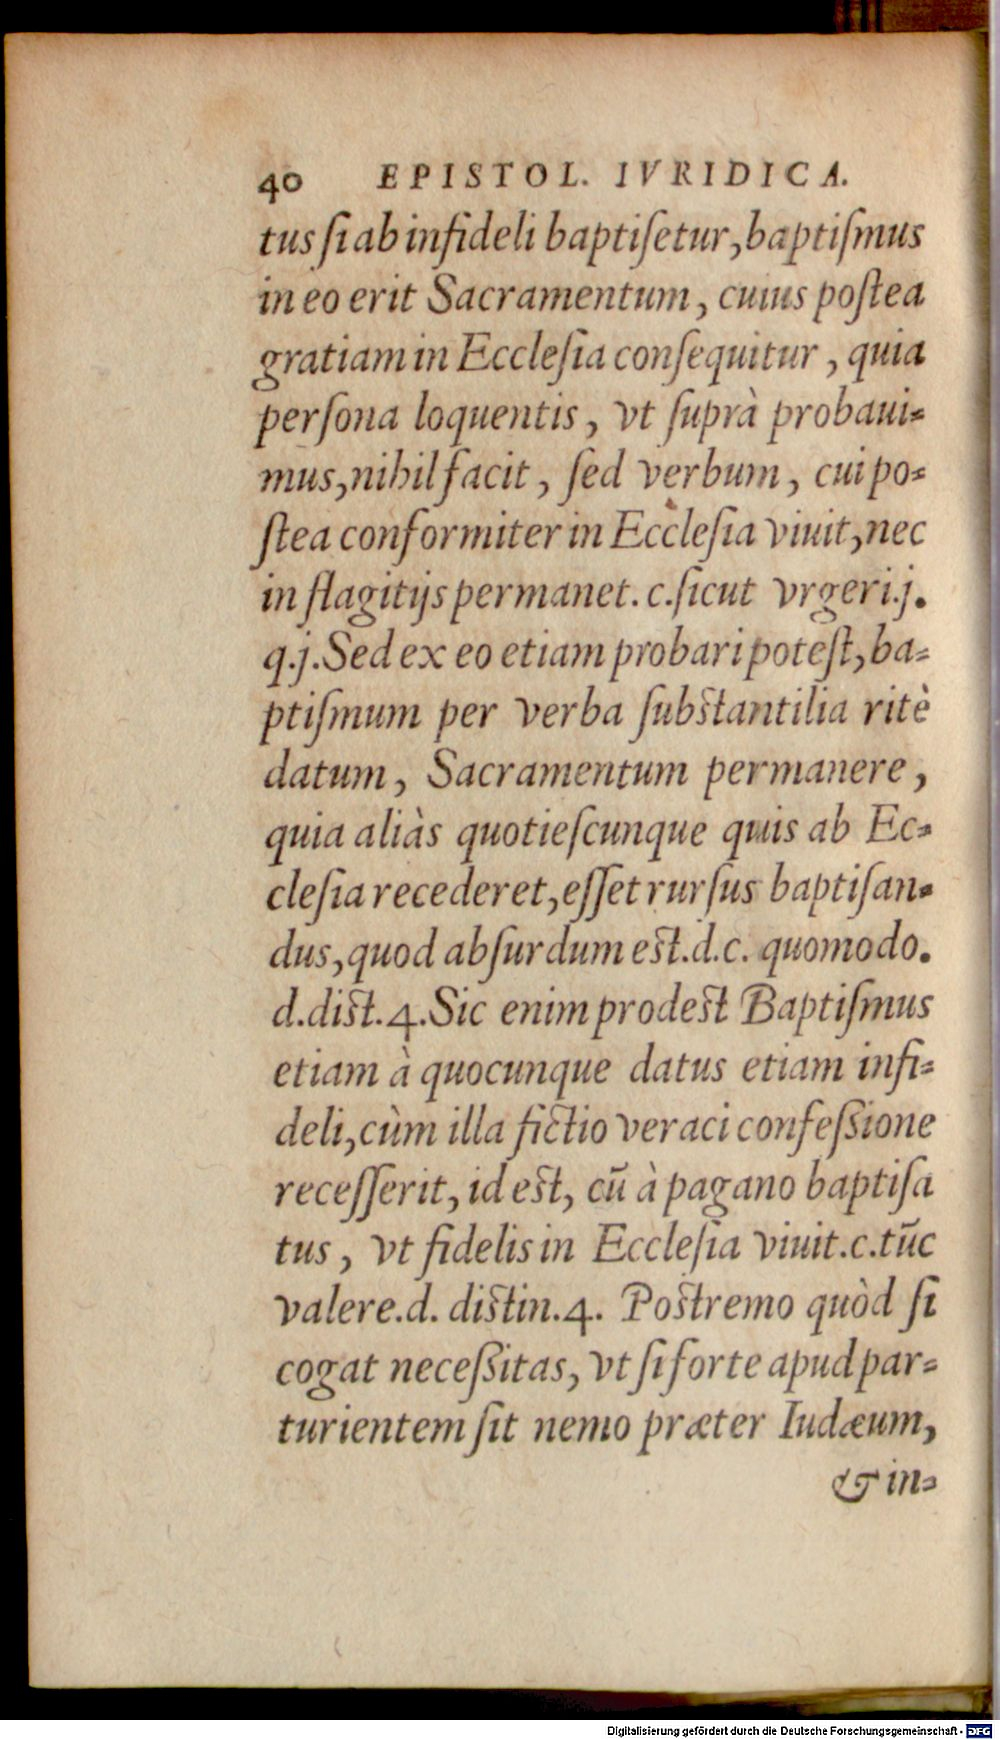 40 EPISTOL. IVRIDICA.
tus ſi ab infideli baptiſetur, baptiſmus
in eo erit Sacramentum, cuius poſtea
gratiam in Eccleſia conſequitur, quia
perſona loquentis, vt ſuprà probaui-
mus, nihil facit, ſed verbum, cui po-
ſtea conformiter in Eccleſia viuit, nec
in flagitijs permanet. c. ſicut vrgeri. j.
q. j. Sed ex eo etiam probari poteſt, ba-
ptiſmum per verba ſubſtantilia ritè
datum, Sacramentum permanere,
quia aliàs quotieſcunque quis ab Ec-
cleſia recederet, eſſet rurſus baptiſan-
dus, quod abſurdum eſt. d. c. quomodo.
d. diſt. 4. Sic enim prodeſt Baptiſmus
etiam à quocunque datus etiam infi-
deli, cùm illa fictio veraci confeßione
receſſerit, id eſt, cū à pagano baptiſa
tus, vt fidelis in Eccleſia viuit. c. tūc
valere. d. diſtin. 4. Poſtremo quòd ſi
cogat neceßitas, vt ſi forte apud par-
turientem ſit nemo præter Iudæum,
& in-
Digitalisierung gefördert durch die Deutsche Forschungsgemeinschaft - DFG